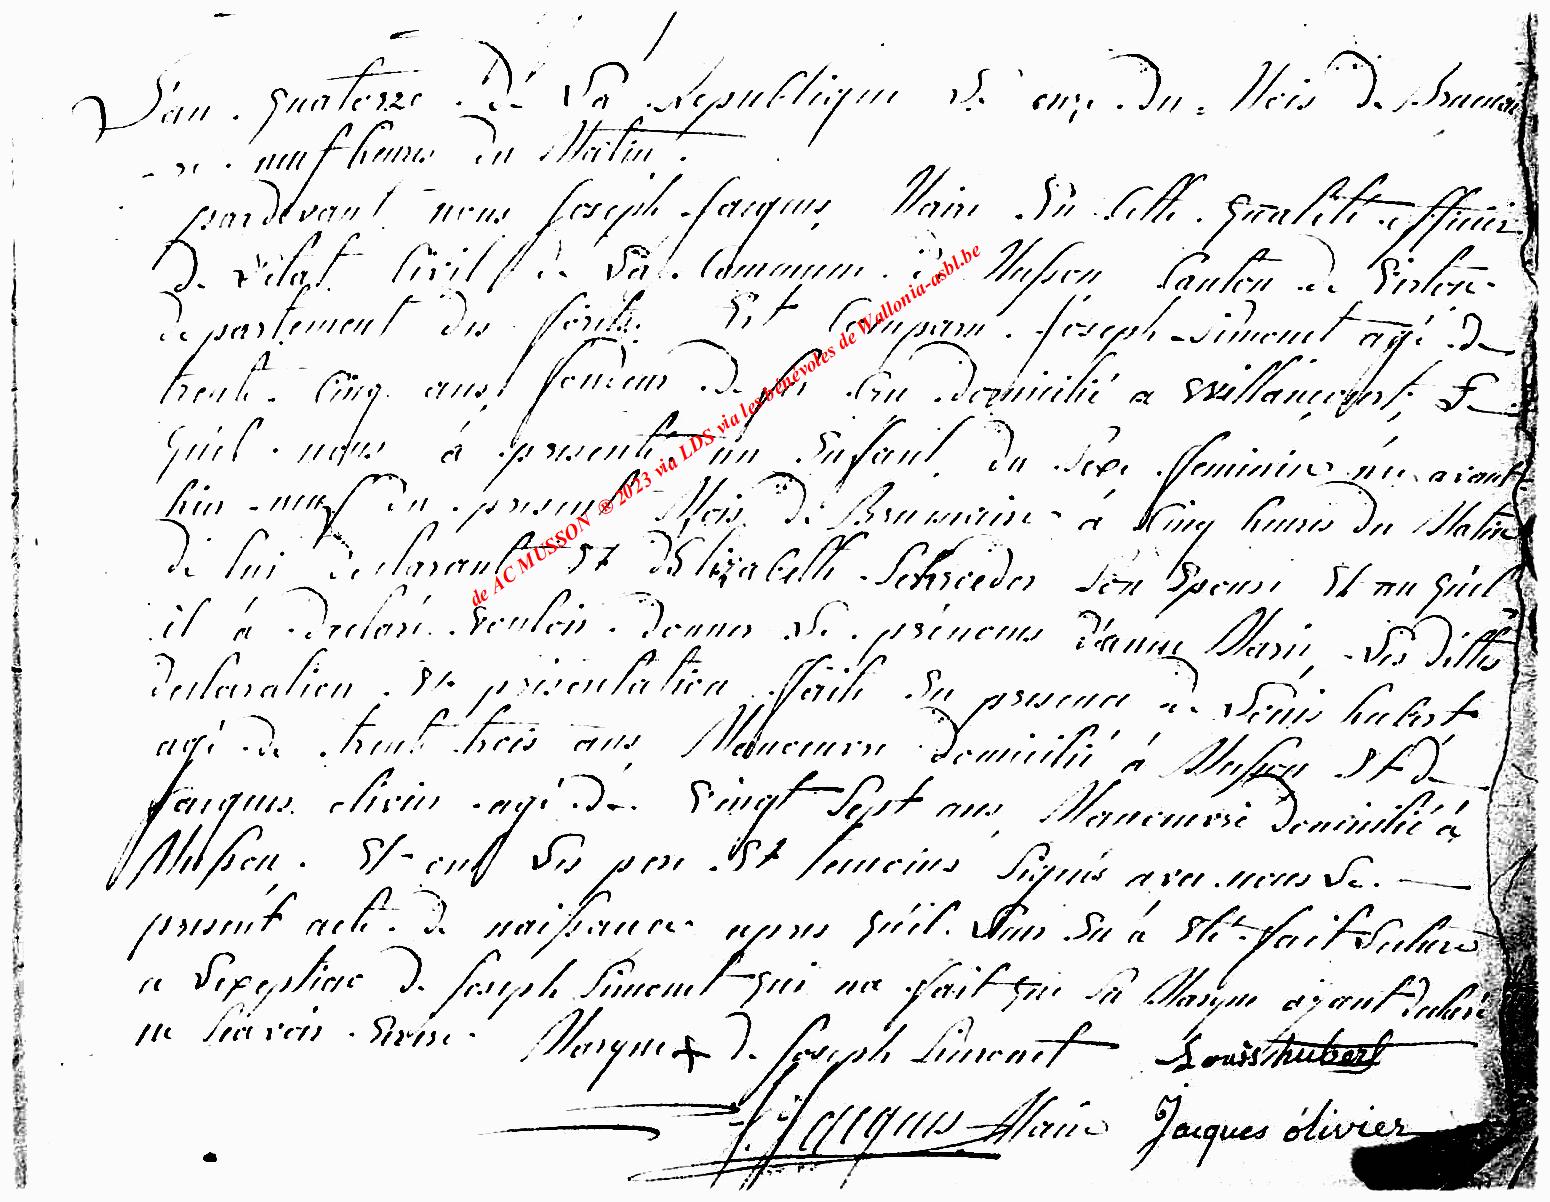 L'an quatorze de La Republique Le onze du Mois de Brumai
re neuf heures du Matin.
pardevant nous Joseph Jacques, Maire En Cette qualité officier
De L'état Civil de La Commune de Musson Canton de Virton
departement des forêts. Est Comparu Joseph Simonet agé De
trente Cinq ans, fondeur De domicilié a Willancourt, Le
quel nous à presenté un Enfant du Sexe feminin né avant
hier neuf du present Mois de Brumaire à Cinq heures du Matin
de lui declarant Et d'Elizabette Schroeder Son Epouse Et au quel
il à declaré Vouloir donner Le prénoms d'anne Marie, Les dittes
declaration Et présentation faite En presence de Louis hubert
agé de trente trois ans, Manoeuvre domicilié à Musson Et de
Jacques olivier agé de Vingt Sept ans, Manoeuvre domicilié à
Musson. Et ont Les pere Et temoins Signés avec nous Le
présent acte de naissance apres qu'il Leur En à Eté fait Lecture
a L'exeption de Joseph Simonet qui na fait que Sa Marque ayant declaré
ne Scavoir Ecrire. Marque + de Joseph Simonet Louis hubert
J. Jacques Maire Jacques ólivier
de AC MUSSON ® 2023 via LDS via les bénévoles de Wallonia-asbl.be